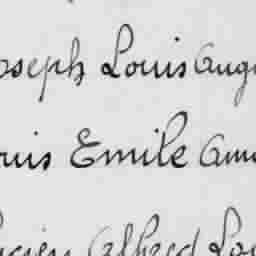 oseph Louis Aug
ouis Emile Am
ucien Alfred Lou